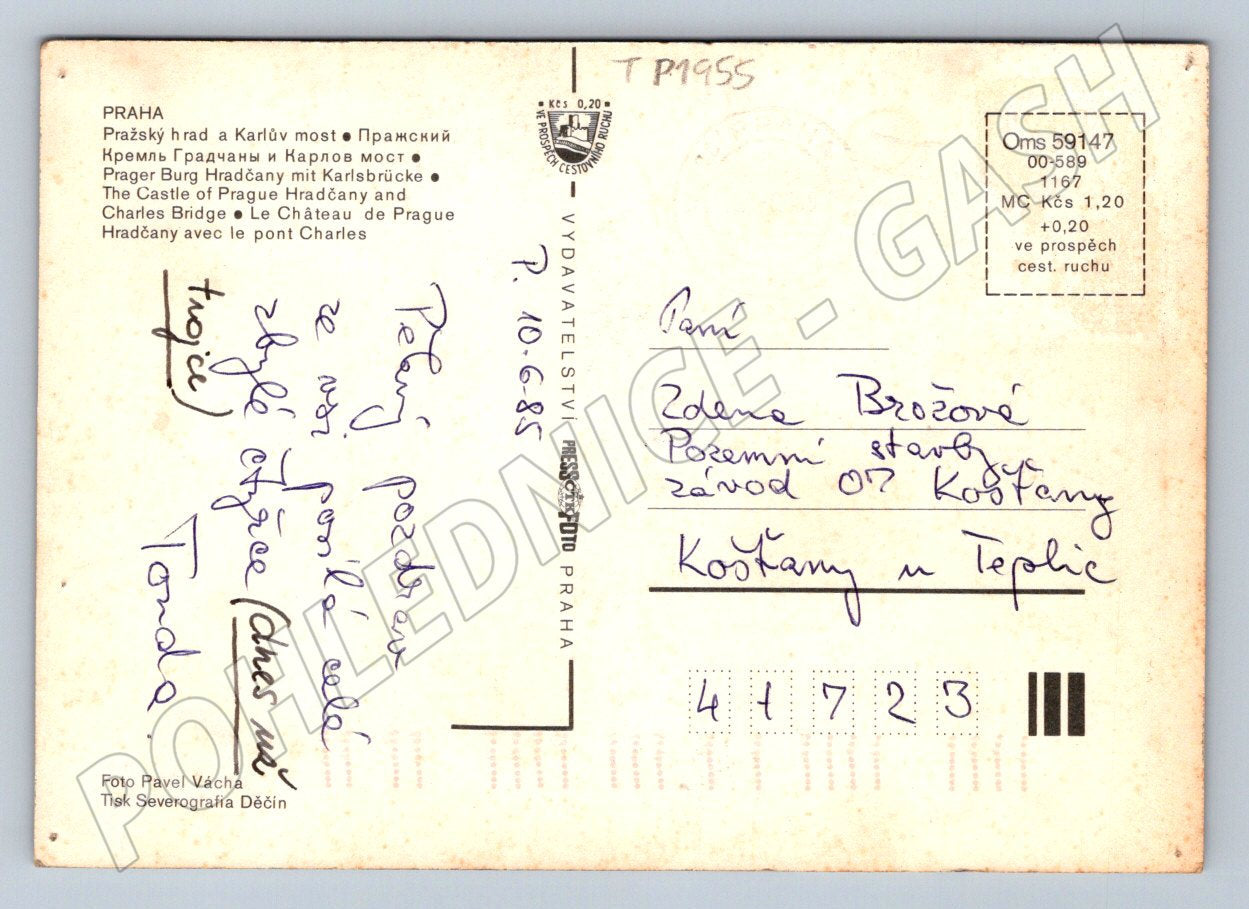 T P1955
PRAHA
Pražský hrad a Karlův most ● Пражский
Кремль Градчаны и Карлов мост ●
Prager Burg Hradčany mit Karlsbrücke ●
The Castle of Prague Hradčany and
Charles Bridge ● Le Château de Prague
Hradčany avec le pont Charles
Kčs 0,20
VE PROSPĚCH CESTOVNÍHO RUCHU
Oms 59147
00-589
1167
MC Kčs 1,20
+0,20
ve prospěch
cest. ruchu
VYDAVATELSTVÍ PRESSFOTO PRAHA
ČTK
P. 10.6.85
pozdrav
ze
celé
zbylé čtyřce (dnes už
trojce)
Tonda.
Paní
Zdena Brožová
Pozemní stavby
závod 07 Košťany
Košťany u Teplic
41723
Foto Pavel Vácha
Tisk Severografia Děčín
POHLEDNICE - GASH